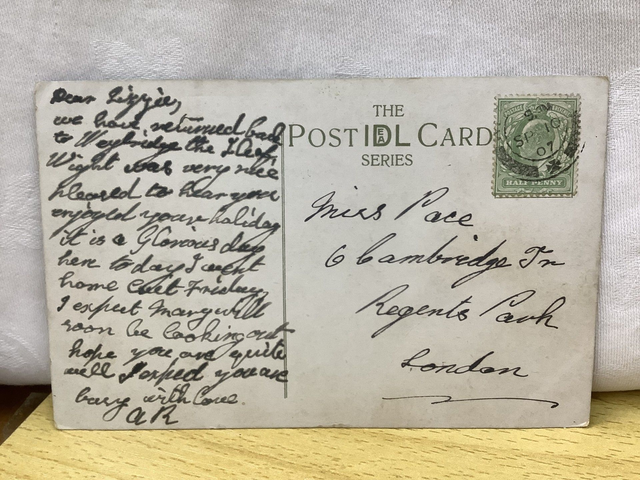 Dear Lizzie,
we have returned back
to Weybridge the I of
Wight was very nice
pleased to hear you
enjoyed your holiday
it is a Glorious day
here to day I went
home last Friday
I expect Mary will
soon be looking out
hope you are quite
well I expect you are
busy with love
A R
THE
POST IDEAL CARD
SERIES
SP 16
07
HALF PENNY
Miss Pace
6 Cambridge Tr
Regents Park
London